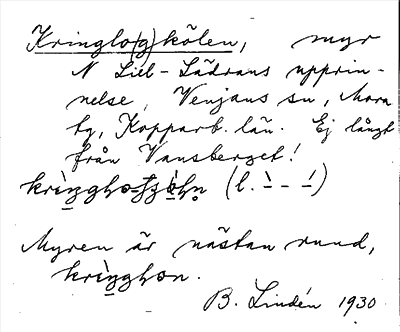 Kringlo(g)kölen, myr
N Liel-Lädrans upprin-
nelse, Venjans sn, Mora
tg, Kopparb. län. Ej långt
från Vansberget!
(l. ̀ - ́)
Myren är nästan rund,
B. Lindén 1930